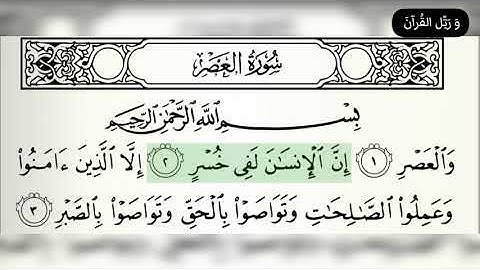 وَ رَتِّلِ القُرآنَ
سُورَةُ العَصْرِ
بِسْمِ اللَّهِ الرَّحْمَٰنِ الرَّحِيمِ
وَالْعَصْرِ ١ إِنَّ الْإِنسَانَ لَفِي خُسْرٍ ٢ إِلَّا الَّذِينَ ءَامَنُوا
وَعَمِلُوا الصَّالِحَاتِ وَتَوَاصَوْا بِالْحَقِّ وَتَوَاصَوْا بِالصَّبْرِ ٣